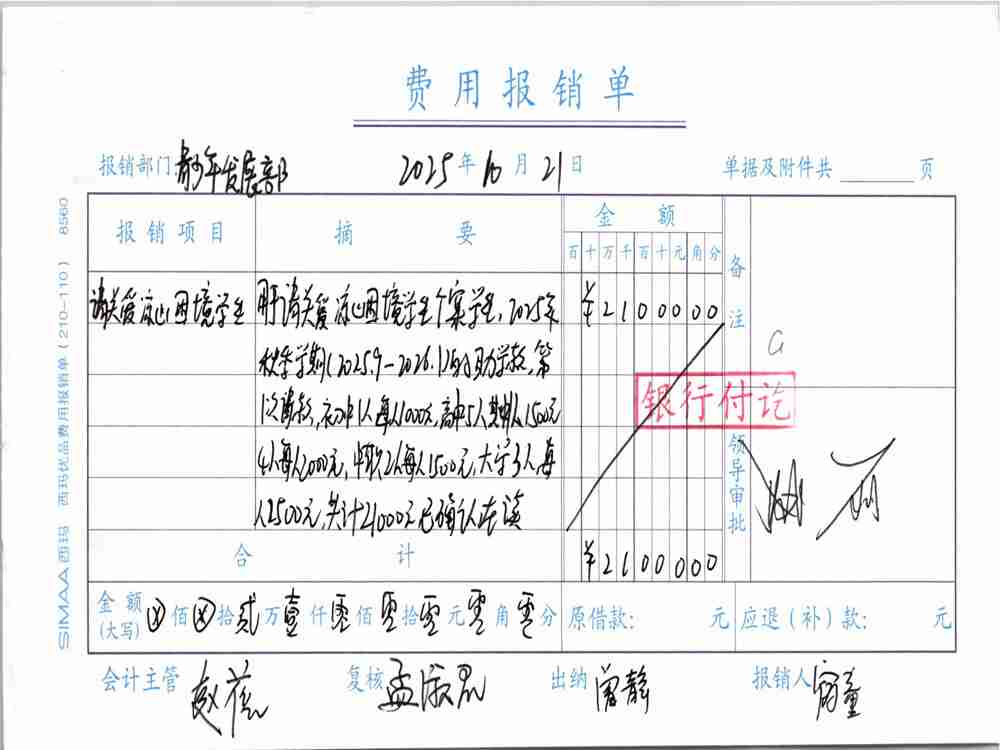 费用报销单
报销部门 青少年发展部 2025年10月21日 单据及附件共 页
报销项目 摘要 金额 备注
百十万千百十元角分
请关爱凉山困境学生 用于请关爱凉山困境学生个案学生,2025年 ¥2100000
秋季学期(2025.9-2026.1)的助学款,第
1次 初中1人每人1000元,高中5人 1人1500元
4人每人2000元,中职2人每人1500元,大学3人每
人2500元,共计21000元已确认在读
银行付讫
领导审批
合计 ¥2100000
金额(大写) ⊗佰⊗拾贰万壹仟零佰零拾零元零角零分 原借款: 元 应退(补)款: 元
会计主管 赵 复核 孟淑 出纳 曾静 报销人
SIMAA西玛 西玛优品费用报销单(210-110) 8560